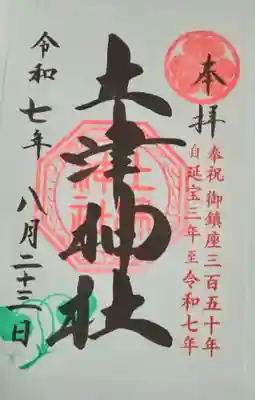 奉拝
奉祝 御鎮座三百五十年
自延宝三年至令和七年
土津神社
令和七年 八月二十三日